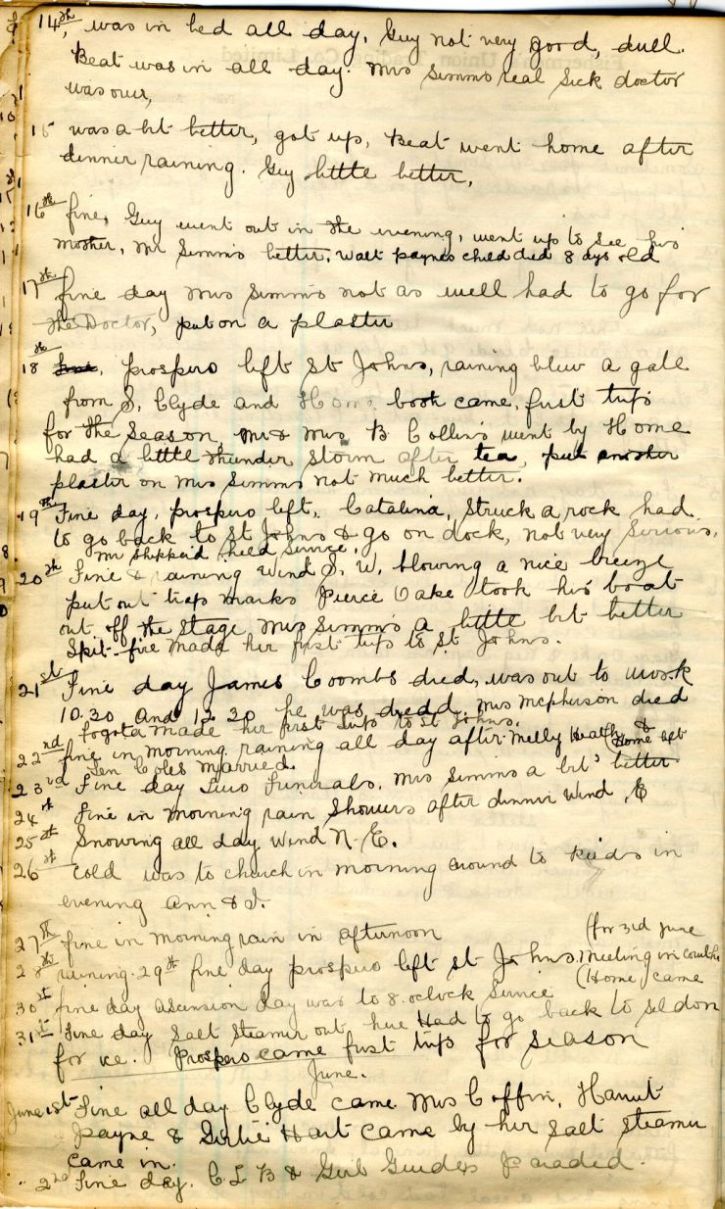 14th, was in bed all day. Guy not very good, dull.
Beat was in all day. Mrs Simms real sick doctor
was over,
15 was a bit better, got up, Beat went home after
dinner raining. Guy little better,
16th fine, Guy went out in the evening, went up to see his
mother, Mr Simms better, Walt Paynes child died 8 dys old
17th fine day Mrs Simms not as well had to go for
the Doctor, put on a plaster
18th Prospero left St Johns, raining blew a gale
from S, Clyde and Home both came, first trips
for the season, Mr & Mrs B Collins went by Home
had a little thunder storm after tea, put another
plaster on Mrs Simms not much better.
19th Fine day, prospero left, Catalina, struck a rock had
to go back to St Johns & go on dock, not very serious,
Mr Shepperd held service,
20th Fine & raining wind S. W. blowing a nice breeze
put out trap marks Pierce Oake took his boat
out off the stage Mrs Simms a little bit better
Spit-fire made her first trip to St Johns.
21st Fine day James Coombs died, was out to work
10.30 and 12.30 he was dead. Mrs McPherson died
Fogota made her first trip to St Johns.
22nd fine in morning raining all day after Melly Heath &
Len Coles married. (Home left
23rd Fine day Two Funerals. Mrs Simms a bit better
24th Fine in morning rain showers after dinner wind E
25th Snowing all day wind N-E.
26th Cold was to church in morning around to in
evening Ann & I.
27th fine in morning rain in afternoon (for 3rd June
28th raining. 29th fine day prospero left St Johns. Meeting in
(Home came
30th fine day ascension day was to 8.oclock Service
31st Fine day Salt Steamer out here Had to go back to Seldom
for ice. Prospero came first trip for season
June.
June 1st Fine all day Clyde came Mrs Coffin, Harriet
Payne & Gertie Hart came by her Salt steamer
came in.
2nd Fine day. C L B & Girl Guides Paraded.